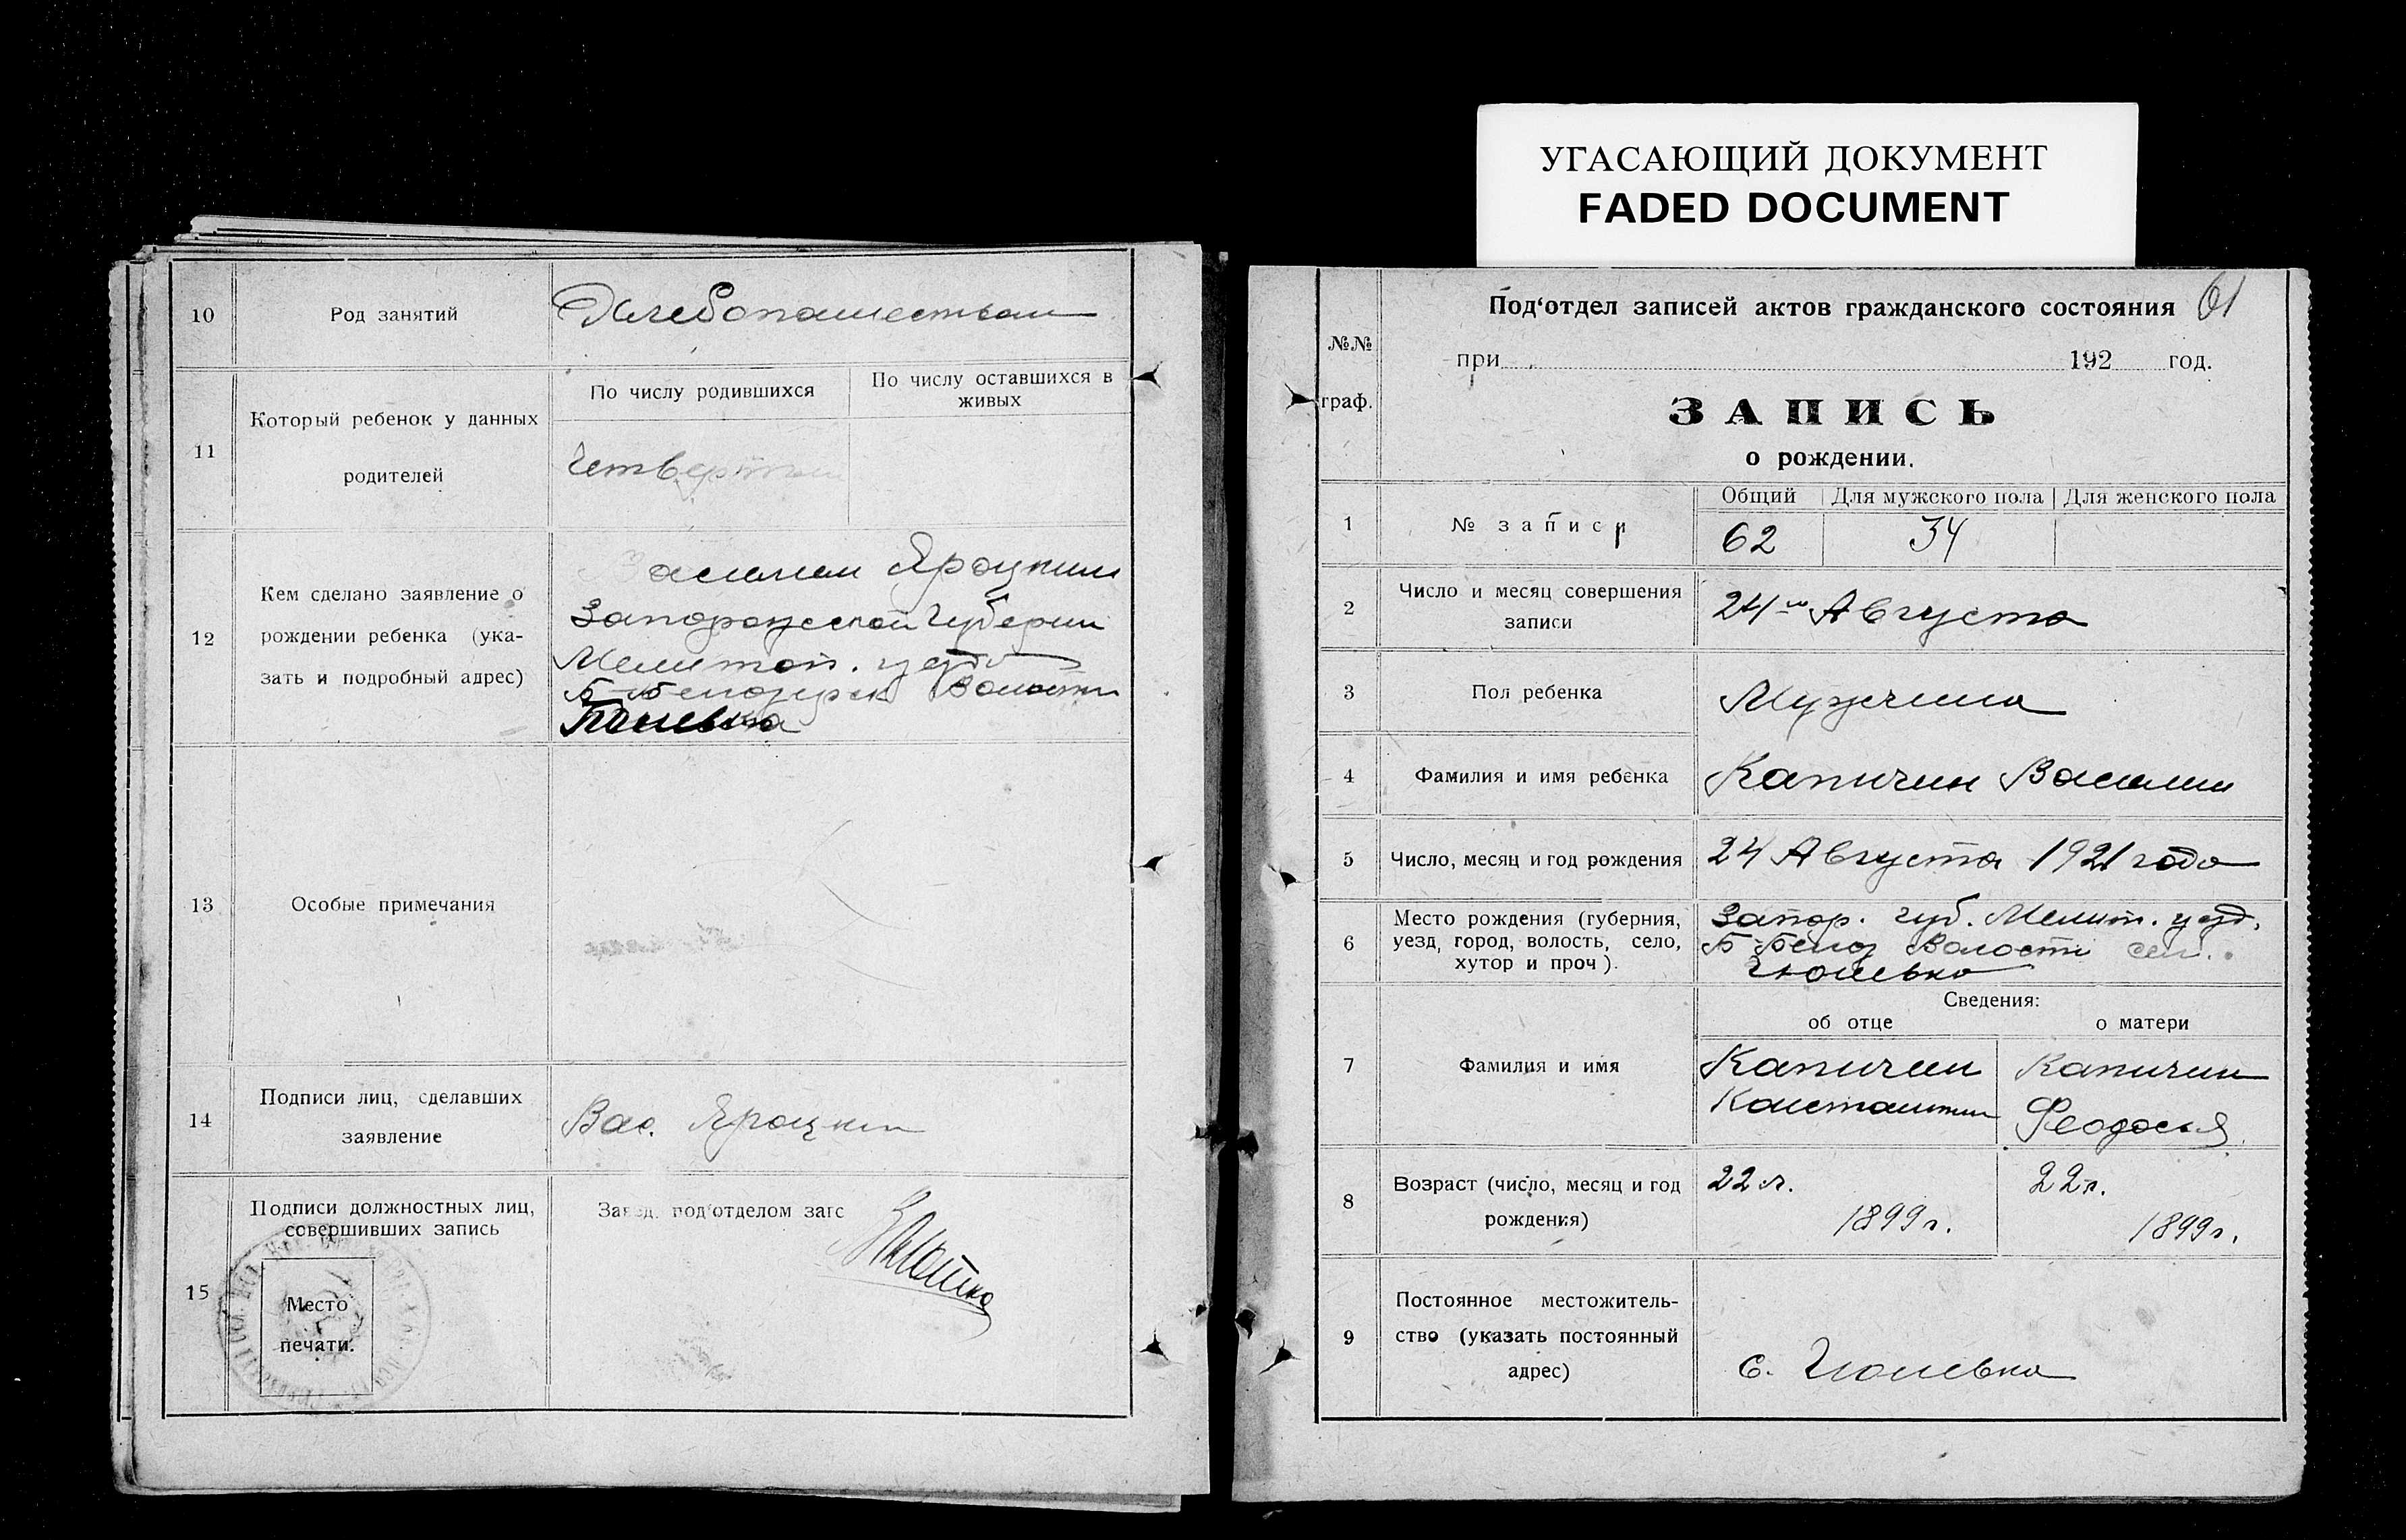 УГАСАЮЩИЙ ДОКУМЕНТ
FADED DOCUMENT
10
Род занятий
Хлебопашеством
11
Который ребенок у данных
родителей
По числу родившихся
По числу оставшихся в
живых
Четвертый
12
Кем сделано заявление о
рождении ребенка (ука-
зать и подробный адрес)
Василий Яроцкий
Запорожской Губернии
Мелитоп. уезда
Б-Белозерск Волости
13
Особые примечания
14
Подписи лиц, сделавших
заявление
Вас. Яроцкий
15
Подписи должностных лиц,
совершивших запись
Место
печати.
Завед. под'отделом загс
61
№№
граф.
Под'отдел записей актов гражданского состояния
при 192 год.
ЗАПИСЬ
о рождении.
1
№ записи
Общий
Для мужского пола
Для женского пола
62
34
2
Число и месяц совершения
записи
24го Августа
3
Пол ребенка
Мужчина
4
Фамилия и имя ребенка
Капичин Василий
5
Число, месяц и год рождения
24 Августа 1921 года
6
Место рождения (губерния,
уезд, город, волость, село,
хутор и проч).
Запор. губ. Мелит. уезд.
Б-Белоз Волости сел.
7
Фамилия и имя
Сведения:
об отце
о матери
Капичин
Константин
Капичин
Феодосья
8
Возраст (число, месяц и год
рождения)
22 л.
1899 г.
22 л.
1899 г.
9
Постоянное местожитель-
ство (указать постоянный
адрес)
с.